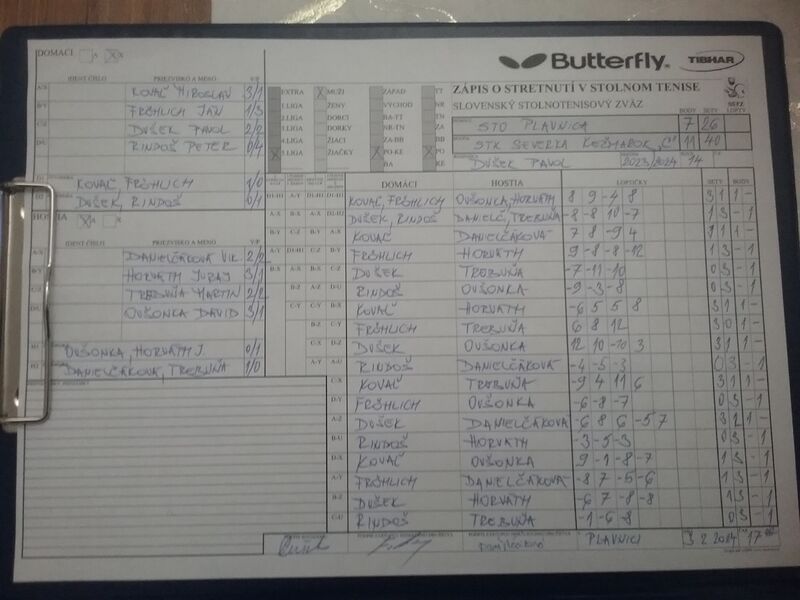 DOMÁCI
Butterfly TIBHAR
IDENT. ČÍSLO PRIEZVISKO A MENO V/P
A/X KOVAČ MIROSLAV 3/1
B/Y FRÖHLICH JÁN 1/3
C/Z DUŠEK PAVOL 2/2
D/U RINDOŠ PETER 0/4
KOVAČ, FRÖHLICH 1/0
DUŠEK, RINDOŠ 0/1
EXTRA X MUŽI ZÁPAD TT
1.LIGA ŽENY VÝCHOD NR
2.LIGA DORCI BA-TT TN
3.LIGA DORKY NR-TN ZA
4.LIGA ŽIACI ZA-BB BB
5.LIGA ŽIAČKY PO-KE PO
KE
ZÁPIS O STRETNUTÍ V STOLNOM TENISE
SLOVENSKÝ STOLNOTENISOVÝ ZVÄZ
SSTZ
BODY SETY LOPTY
STO PLAVNICA 7 26
STK SEVERKA KEŽMAROK "C" 11 40
DUŠEK PAVOL 2023/2024 14
HOSTIA
IDENT. ČÍSLO PRIEZVISKO A MENO V/P
A/X DANIELČÁKOVÁ VIK. 2/2
B/Y HORVÁTH JURAJ 3/1
C/Z TREBUŇA MARTIN 2/2
D/U OVŠONKA DAVID 3/1
OVŠONKA, HORVÁTH J. 0/1
DANIELČÁKOVÁ, TREBUŇA 1/0
DOMÁCI HOSTIA LOPTIČKY SETY BODY
KOVAČ, FRÖHLICH OVŠONKA, HORVÁTH 8 9 -4 8 3 1 1 -
DUŠEK, RINDOŠ DANIELČ, TREBUŇA -8 8 -10 -7 1 3 - 1
KOVAČ DANIELČÁKOVÁ 7 8 -9 4
FRÖHLICH HORVÁTH 9 -8 -8 -12 1 3 - 1
DUŠEK TREBUŇA -7 -11 -10 0 3 - 1
RINDOŠ OVŠONKA -9 -3 -8 0 3 - 1
KOVAČ HORVÁTH -6 5 5 8 3 1 1 -
FRÖHLICH TREBUŇA 6 8 12 3 0 1 -
DUŠEK OVŠONKA 12 10 -10 3 3 1 1 -
RINDOŠ DANIELČÁKOVÁ -4 -5 -3 0 3 - 1
KOVAČ TREBUŇA -9 4 11 6 3 1 1 -
FRÖHLICH OVŠONKA -6 -8 -7 0 3 - 1
DUŠEK DANIELČÁKOVÁ -6 8 6 -5 7 3 2 1 -
RINDOŠ HORVÁTH -3 -5 -3 0 3 - 1
KOVAČ OVŠONKA 9 -1 -8 -7 1 3 - 1
FRÖHLICH DANIELČÁKOVÁ -8 7 -5 -6 1 3 - 1
DUŠEK HORVÁTH -6 7 -8 -8 1 3 - 1
RINDOŠ TREBUŇA -1 -6 -8 0 3 - 1
PLAVNICI 3 2 2024 17